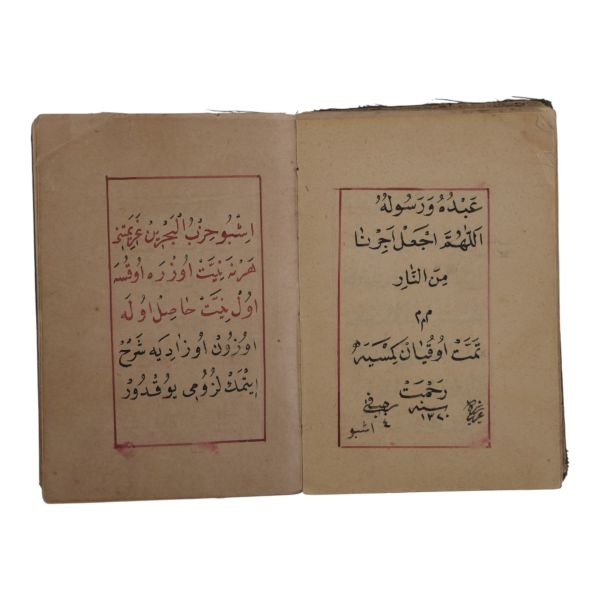 عَبْدُهُ وَرَسُولُهُ
اَللّٰهُمَّ اجْعَلْ اَجِرْنَا
مِنَ النَّارِ
م م م
تَمَّتْ اوُقُيَانْ كِمْسَيَه
رَحْمَتْ
سنه ١٣٢٠
اشبو
اِشْبُو حِزْبُ الْبَحْرِينْ عَزِيمَتِنِى
هَرْ نَه نِيَّتْ اوُزْرَه اوُقُسَه
اوُلْ نِيَّتْ حَاصِلْ اوُلَه
اوُزُونْ اوُزَادِيَه شَرْحْ
اِيتْمَكْ لُزُومِى يوُقْدُورْ